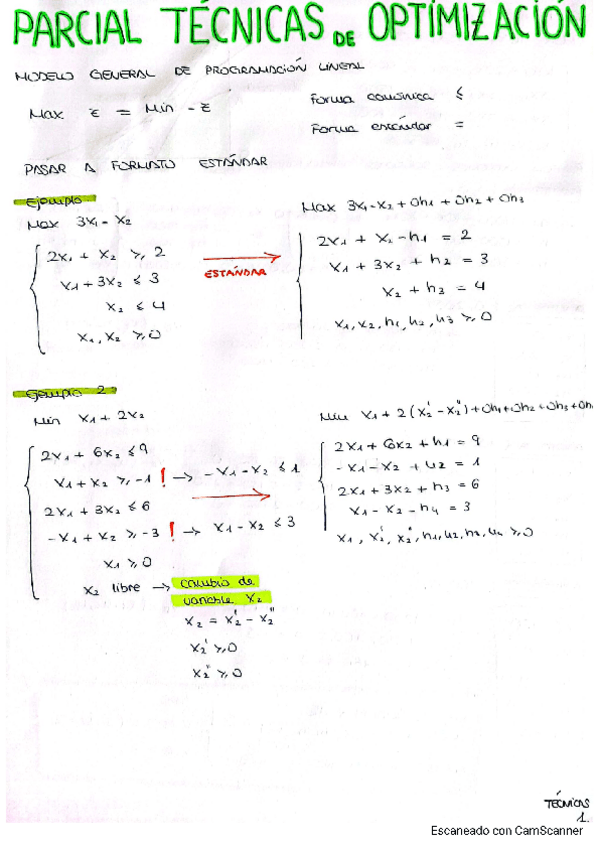 PARCIAL TÉCNICAS DE OPTIMIZACIÓN
MODELO GENERAL DE PROGRAMACIÓN LINEAL
Max Z = Min - Z
Forma canónica ≤
Forma estándar =
PASAR A FORMATO ESTÁNDAR
Ejemplo
Max 3x₁ - x₂
2x₁ + x₂ ≥ 2
x₁ + 3x₂ ≤ 3
x₂ ≤ 4
x₁, x₂ ≥ 0
ESTÁNDAR
Max 3x₁ - x₂ + 0h₁ + 0h₂ + 0h₃
2x₁ + x₂ - h₁ = 2
x₁ + 3x₂ + h₂ = 3
x₂ + h₃ = 4
x₁, x₂, h₁, h₂, h₃ ≥ 0
Ejemplo 2
Min x₁ + 2x₂
2x₁ + 6x₂ ≤ 9
x₁ + x₂ ≥ -1 ! → -x₁ - x₂ ≤ 1
2x₁ + 3x₂ ≤ 6
-x₁ + x₂ ≥ -3 ! → x₁ - x₂ ≤ 3
x₁ ≥ 0
x₂ libre → cambio de
variable x₂
x₂ = x₂' - x₂''
x₂' ≥ 0
x₂'' ≥ 0
Min x₁ + 2(x₂' - x₂'') + 0h₁ + 0h₂ + 0h₃ + 0h
2x₁ + 6x₂ + h₁ = 9
-x₁ - x₂ + h₂ = 1
2x₁ + 3x₂ + h₃ = 6
x₁ - x₂ - h₄ = 3
x₁, x₂', x₂'', h₁, h₂, h₃, h₄ ≥ 0
TÉCNICAS
1.
Escaneado con CamScanner